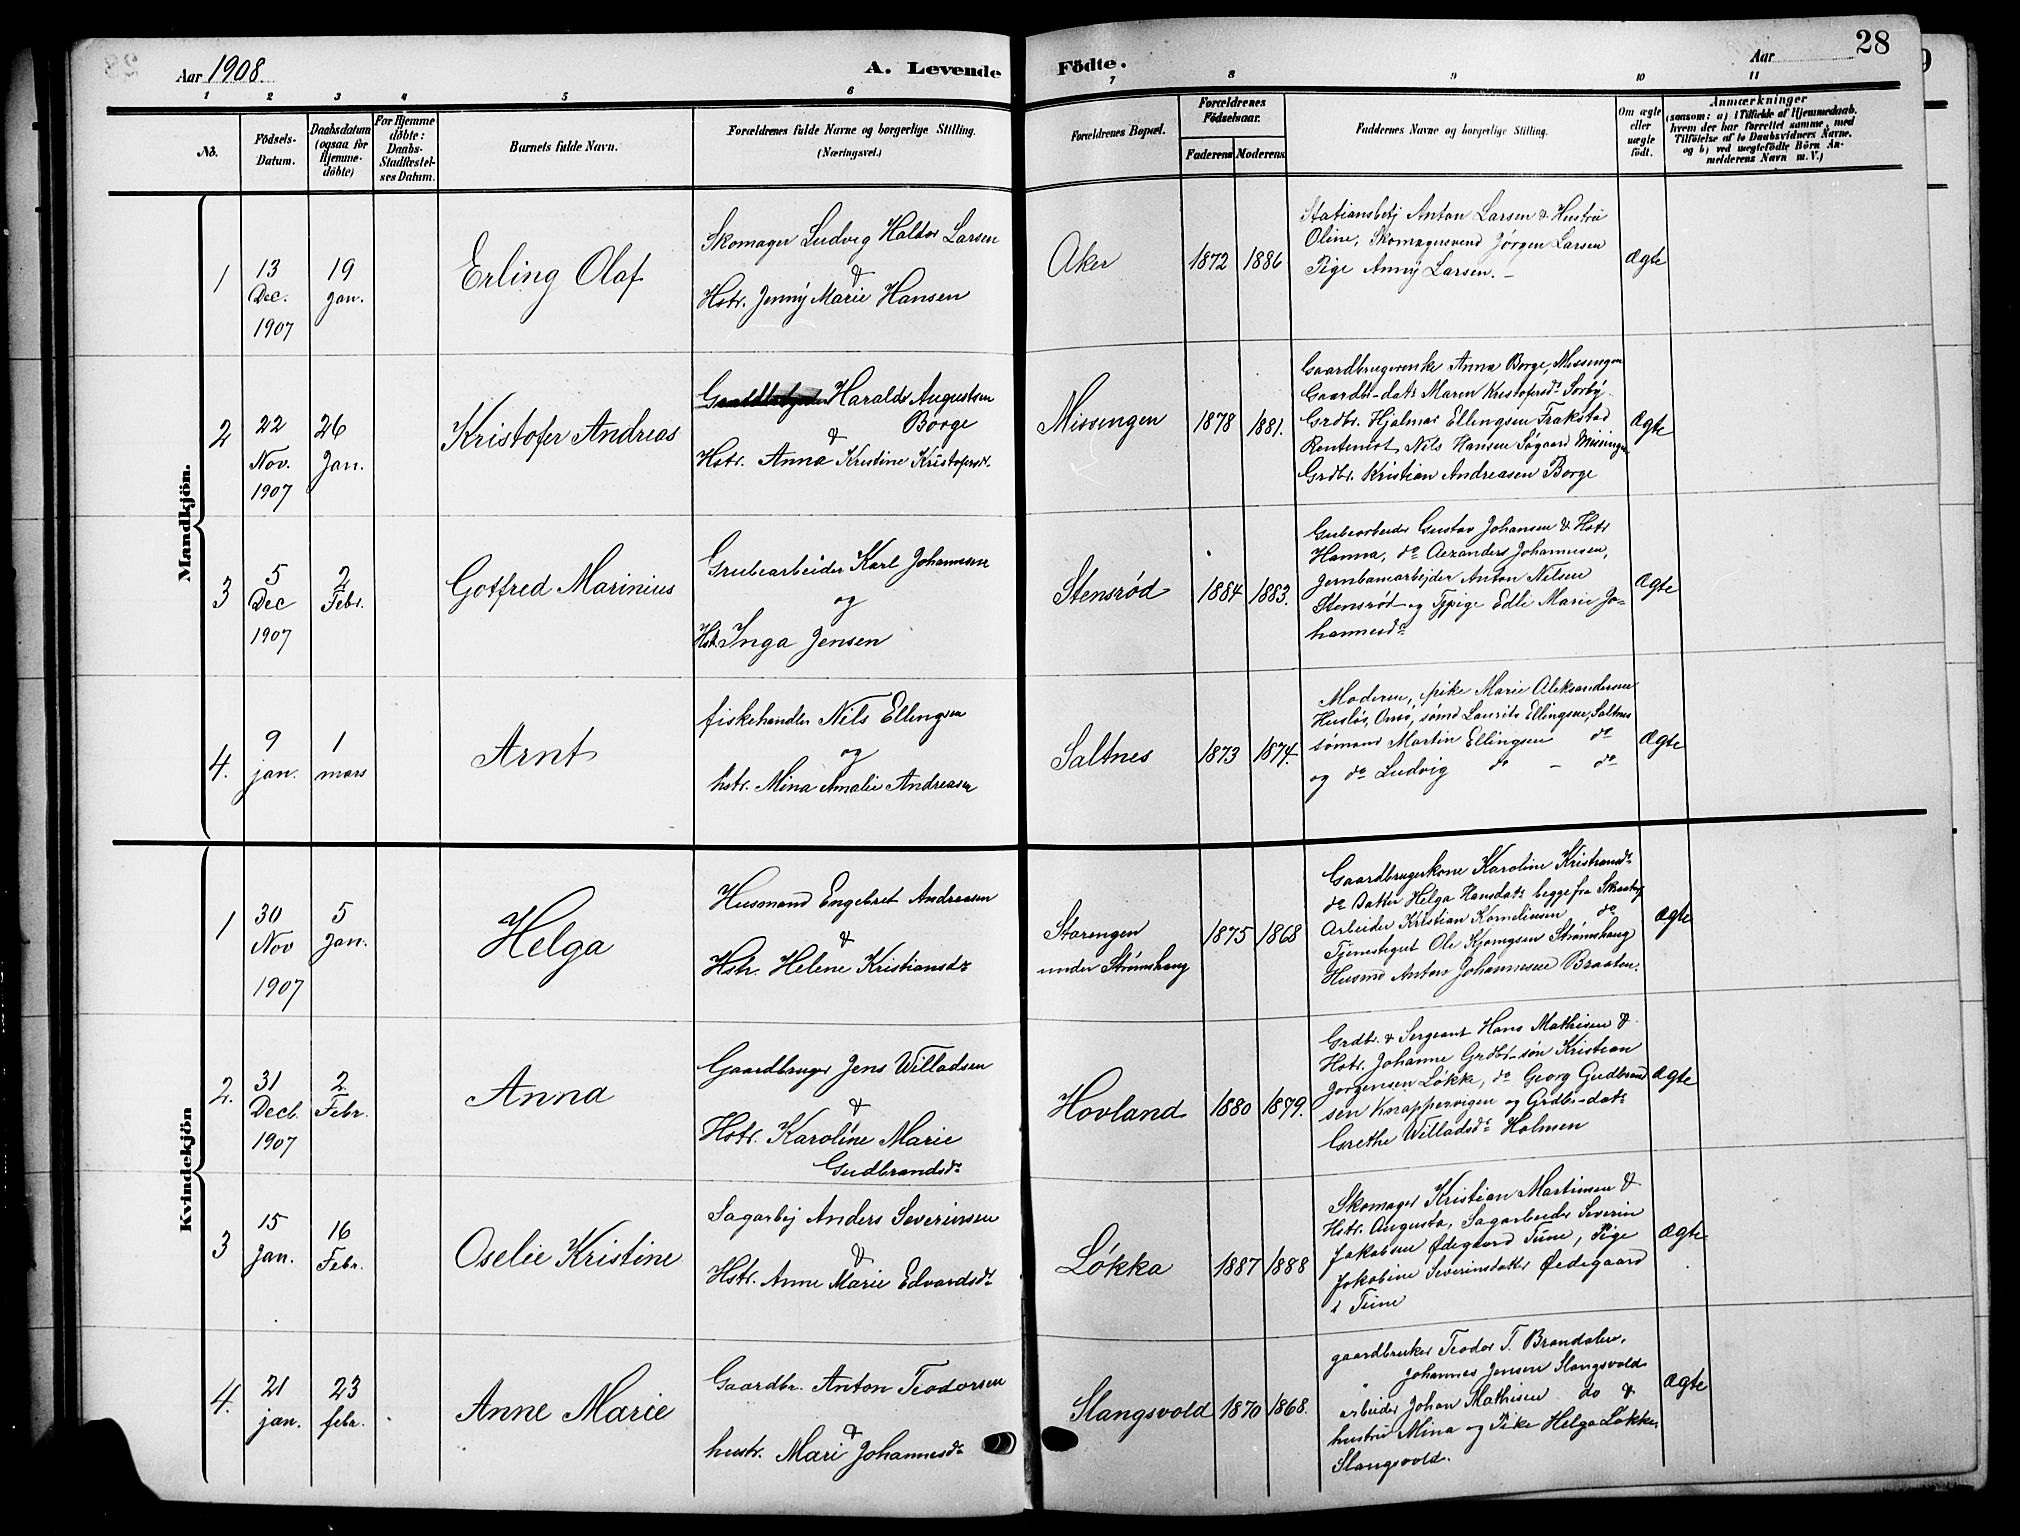 28
Aar 1908.
A. Levende Födte.
Aar
1 2 3 4 5 6 7 8 9 10 11
No.
Födsels-
Datum.
Daabsdatum
(ogsaa for
Hjemme-
döbte)
For Hjemme
döbte:
Daabs-
Stadfæstel-
ses Datum.
Barnets fulde Navn.
Forældrenes fulde Navne og borgerlige Stilling.
(Næringsvei.)
Forældrenes Bopæl.
Forældrenes
Födselsaar.
Faderens Moderens
Faddernes Navne og borgerlige Stilling.
Om ægte
eller
uægte
födt.
Anmærkninger
(saasom: a) i Tilfælde af Hjemmedaab,
hvem der har forrettet samme, med
Tilföielse af to Daabsvidners Navne,
og b) ved uægtefödte Börn An-
melderens Navn m. V.)
Mandkjön.
1
13
Dec.
1907
19
Jan.
Erling Olaf
Skomager Ludvig Haldor Larsen
&
Hstr. Jenny Marie Hansen
Aker
1872 1886
Stationsbetj Anton Larsen & Hustru
Oline, Skomagersvend Jørgen Larsen
Pige Anny Larsen. –
Ægte
2
22
Nov.
1907
26
Jan.
Kristofer Andreas
Harald Augustsen
Borge
&
Hstr. Anna Kristine Kristofersdr.
Missengen
1878 1881.
Gaardbrugerenke Anna Borge, Missengen
Gaardbr-datr Maren Kristofersdr Sorby
Grdbr. Hjalmar Ellingsen Frakstad
Nils Hansen Søgaard Missingen
Grdbr. Kristian Andreasen Borge
Ægte
3
5
Dec
1907
2
Febr.
Gotfred Marinius
Grubearbeider Karl Johannesen
og
Hst. Inga Jensen
Stensrød
1884 1883.
Grubearbeider Gustav Johansen & Hstr
Hanna, do Johannesen,
Jernbanearbejder Anton Nilsen
Stensrød og Tjpige Edle Marie Jo-
hannesdr
Ægte
4.
9
jan.
1
mars
Arnt
fiskehandler Nils Ellingsen
og
hstr. Mina Amalie Andreasen
Saltnes
1873 1874.
Moderen, pike Marie Aleksandersen
Husløs, Onsø, sømd Laurits Ellingsen, Saltnes
sømand Martin Ellingsen do
og do Ludvig do – do
Ægte
Kvindekjön
1
30
Nov
1907
5
Jan.
Helga
Husmand Engebret Andreasen
&
Hstr. Helene Kristiansdr
Starengen
under Strømshaug
1875 1868
Gaardbrugerkone Karoline Kristiansdr
do Datter Helga Hansdatr begge fra
Arbeider Kristian Korneliusen do
Tjenestegut Ole Strømshaug
Husmd Anton Johannesen Braaten.
Ægte
2.
31
Decb.
1907
2
Febr.
Anna
Gaardbruger Jens Willadsen
&
Hstr. Karoline Marie
Gudbrandsdr
Hovland
1880 1879.
Grdbr. & Sergeant Hans Mathisen &
Hstr. Johanne Grdbr-søn Kristian
Jørgensen Løkke, do Georg Gudbrand
sen Knappervigen og Grdbr-datr
Grethe Willadsdr Holmen
Ægte
3
15
Jan.
16
Febr.
Oselie Kristine
Sagarbej Anders Severinsen
&
Hstr. Anne Marie Edvardsdr
Løkka
1887 1888
Skomager Kristian Martinsen &
Hstr. Augusta, Sagarbeider Severin
Jakobsen Ødegaard Tune, Pige
Jokobine Severinsdatter Ødegaard
i Tune
Ægte
4.
21
jan.
23
febr.
Anne Marie
Gaardbr. Anton Teodorsen
&
hustr. Mari Johannesdr
Slangsvold
1870 1868.
gaardbruker Teodor T. Brandalen,
" Johannes Jensen Slangsvold
arbeider Johan Mathisen do &
hustru Mina og Pike Helga Løkke,
Slangsvold.
Ægte